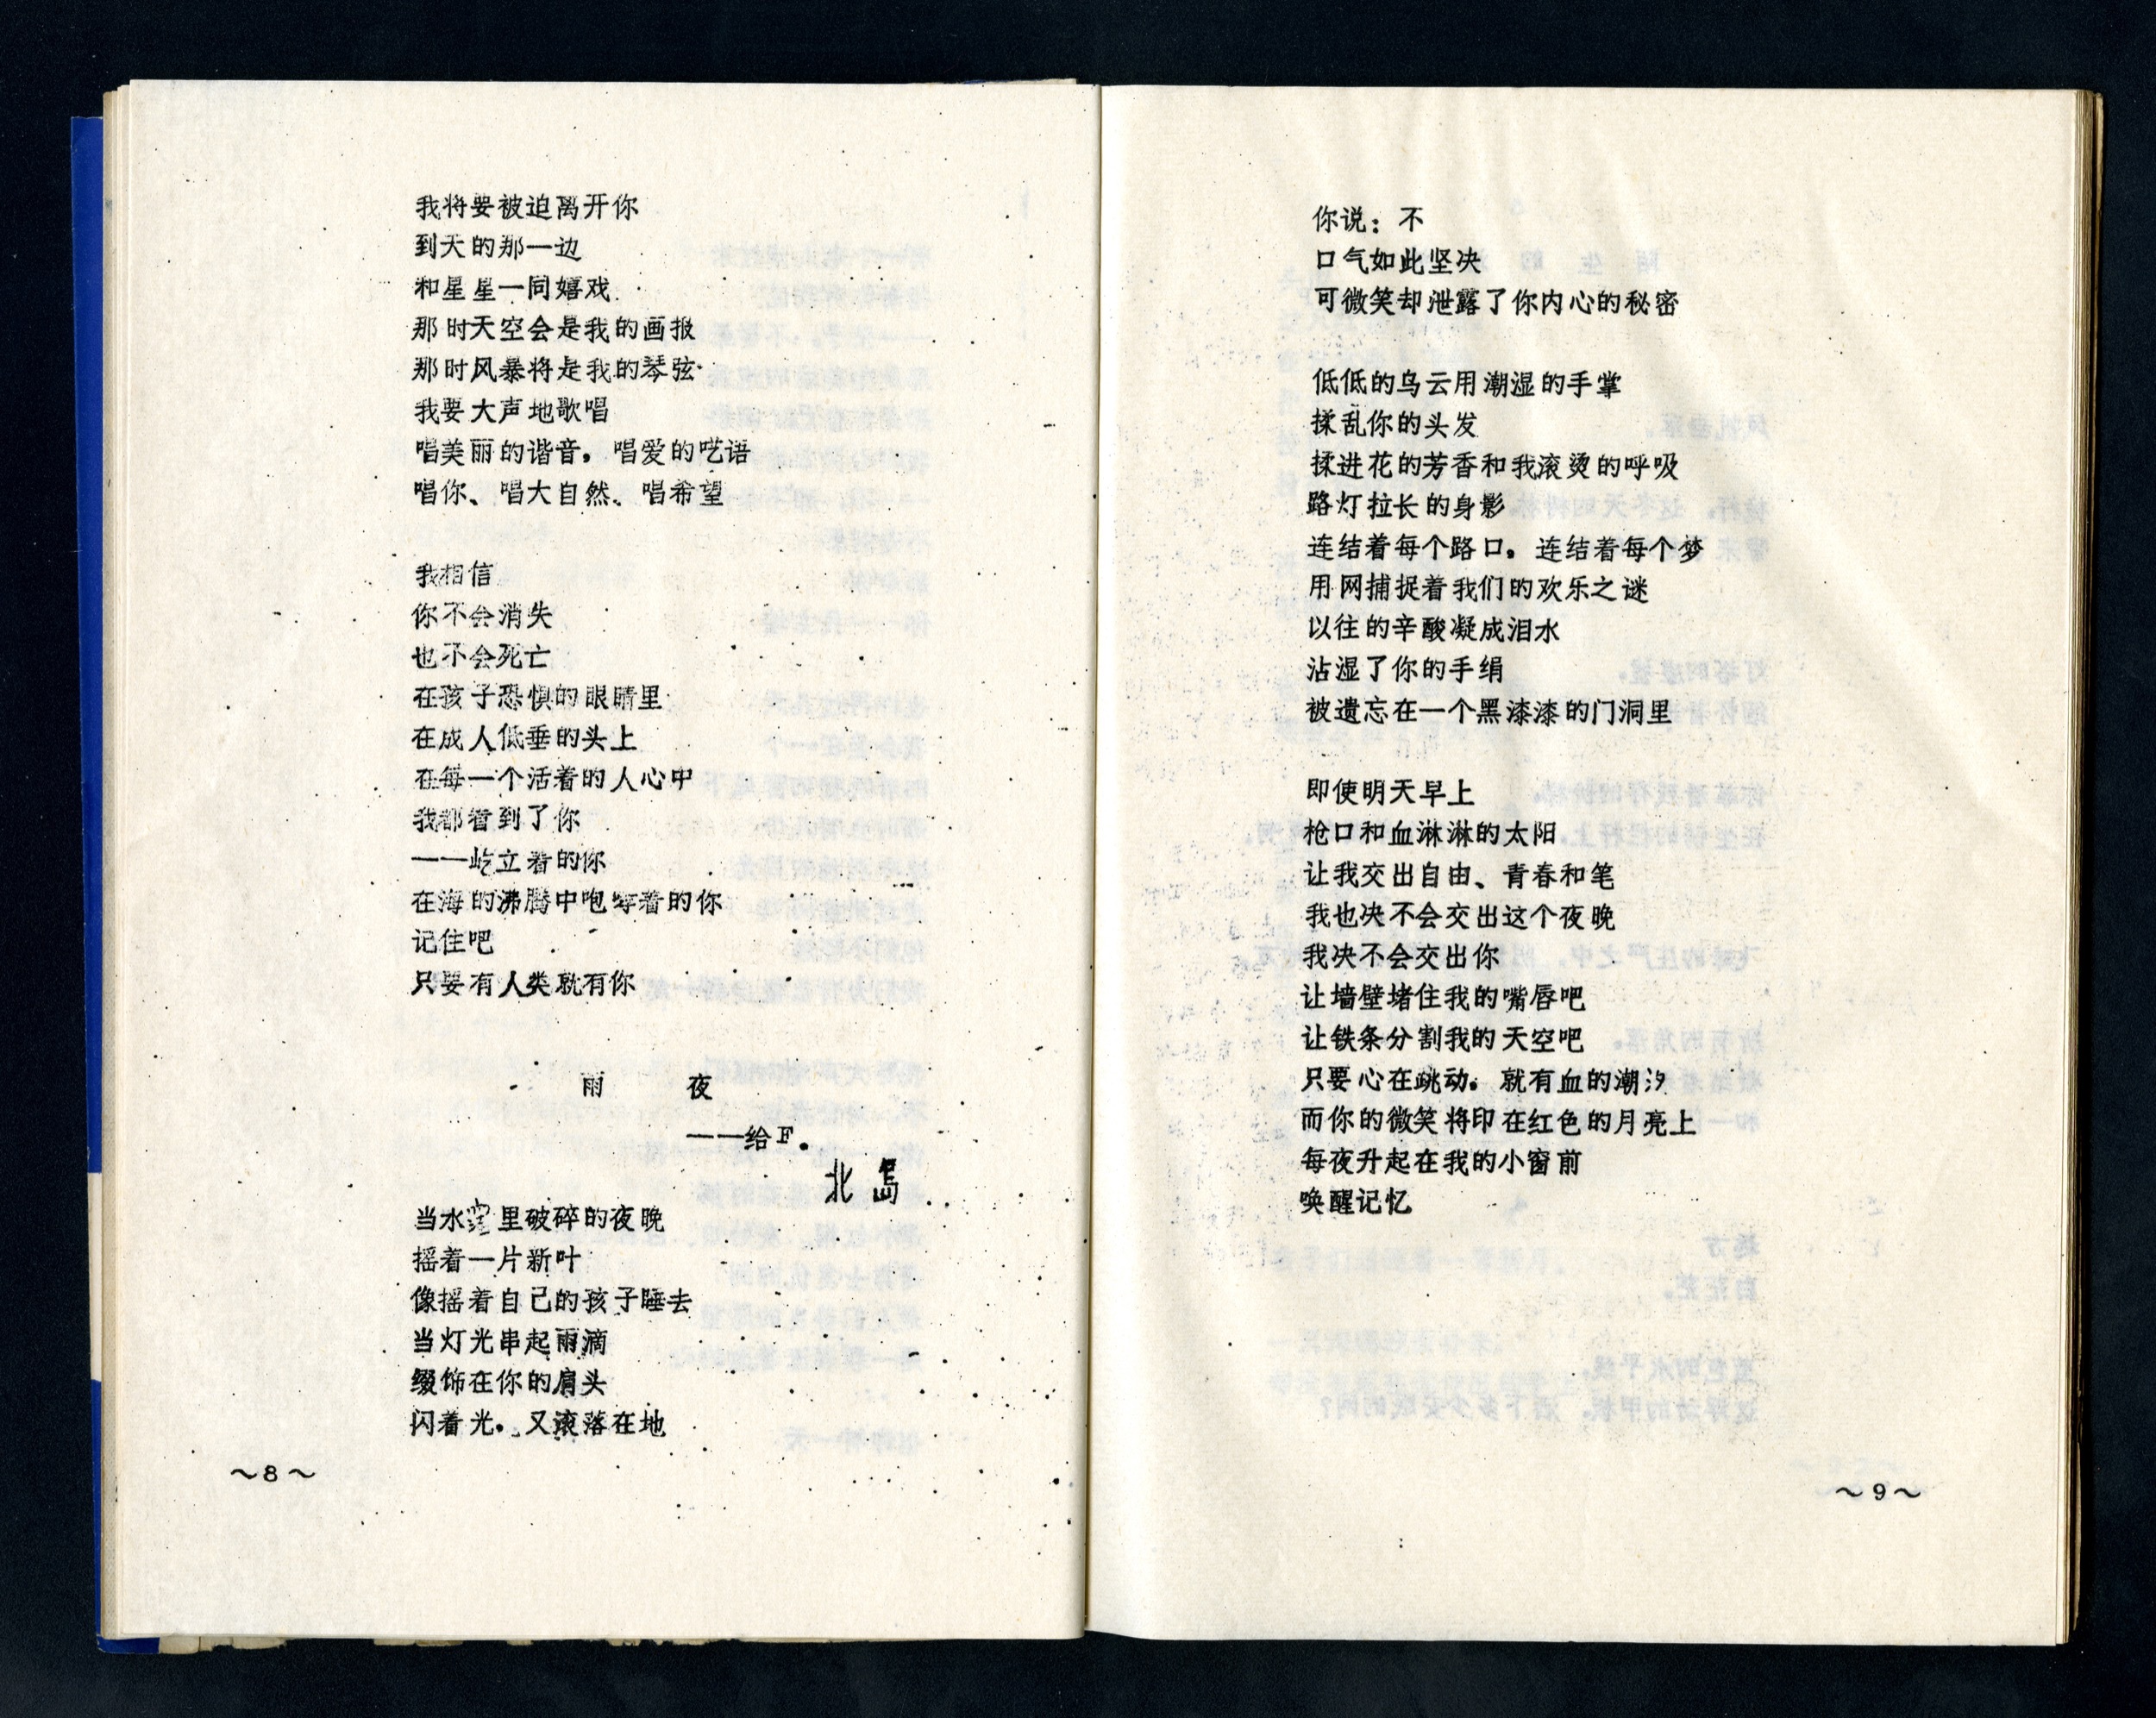 我将要被迫离开你
到天的那一边
和星星一同嬉戏
那时天空会是我的画报
那时风暴将是我的琴弦
我要大声地歌唱
唱美丽的谐音，唱爱的呓语
唱你、唱大自然、唱希望
我相信
你不会消失
也不会死亡
在孩子恐惧的眼睛里
在成人低垂的头上
在每一个活着的人心中
我都看到了你
——屹立着的你
在海的沸腾中咆哮着的你
记住吧
只要有人类就有你
雨 夜
——给F.
北岛
当水洼里破碎的夜晚
摇着一片新叶
像摇着自己的孩子睡去
当灯光串起雨滴
缀饰在你的肩头
闪着光。又滚落在地
～8～
你说：不
口气如此坚决
可微笑却泄露了你内心的秘密
低低的乌云用潮湿的手掌
揉乱你的头发
揉进花的芳香和我滚烫的呼吸
路灯拉长的身影
连结着每个路口。连结着每个梦
用网捕捉着我们的欢乐之谜
以往的辛酸凝成泪水
沾湿了你的手绢
被遗忘在一个黑漆漆的门洞里
即使明天早上
枪口和血淋淋的太阳
让我交出自由、青春和笔
我也决不会交出这个夜晚
我决不会交出你
让墙壁堵住我的嘴唇吧
让铁条分割我的天空吧
只要心在跳动。就有血的潮汐
而你的微笑将印在红色的月亮上
每夜升起在我的小窗前
唤醒记忆
～9～